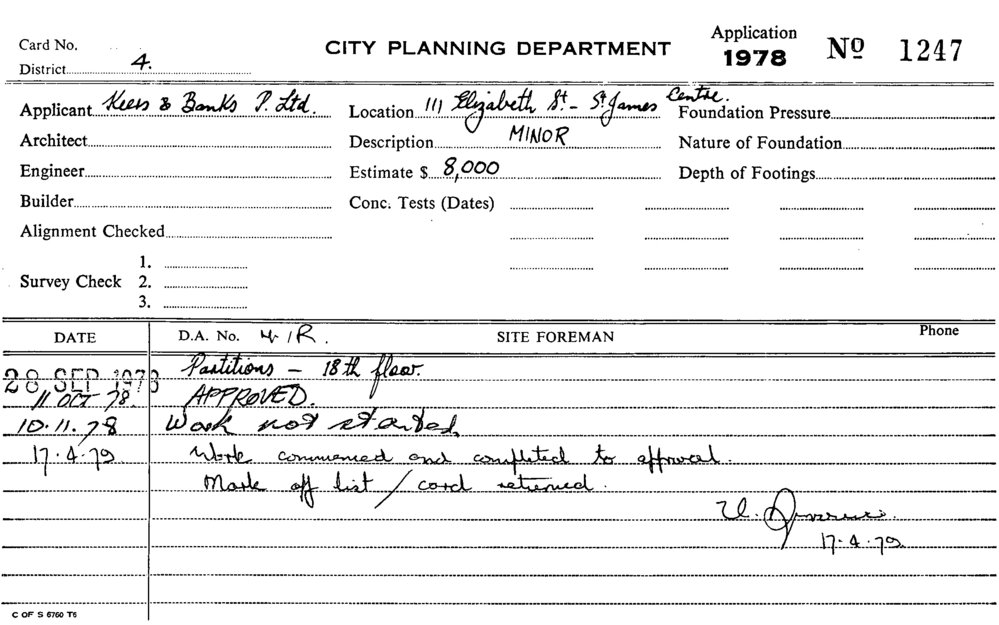 Card No. CITY PLANNING DEPARTMENT Application 1978 No 1247
District 4.
Applicant Keers & Banks P. Ltd. Location 111 Elizabeth St - St James Centre. Foundation Pressure
Architect Description MINOR Nature of Foundation
Engineer Estimate $ 8,000 Depth of Footings
Builder Conc. Tests (Dates)
Alignment Checked
Survey Check 1.
2.
3.
DATE D.A. No. SITE FOREMAN Phone
28 SEP 1978 Partitions - 18th floor.
11 OCT 78. APPROVED.
10.11.78 Work not started
17.4.79 Work commenced and completed to approval.
Mark off list / card returned.
17.4.79.
C OF S 6760 T6